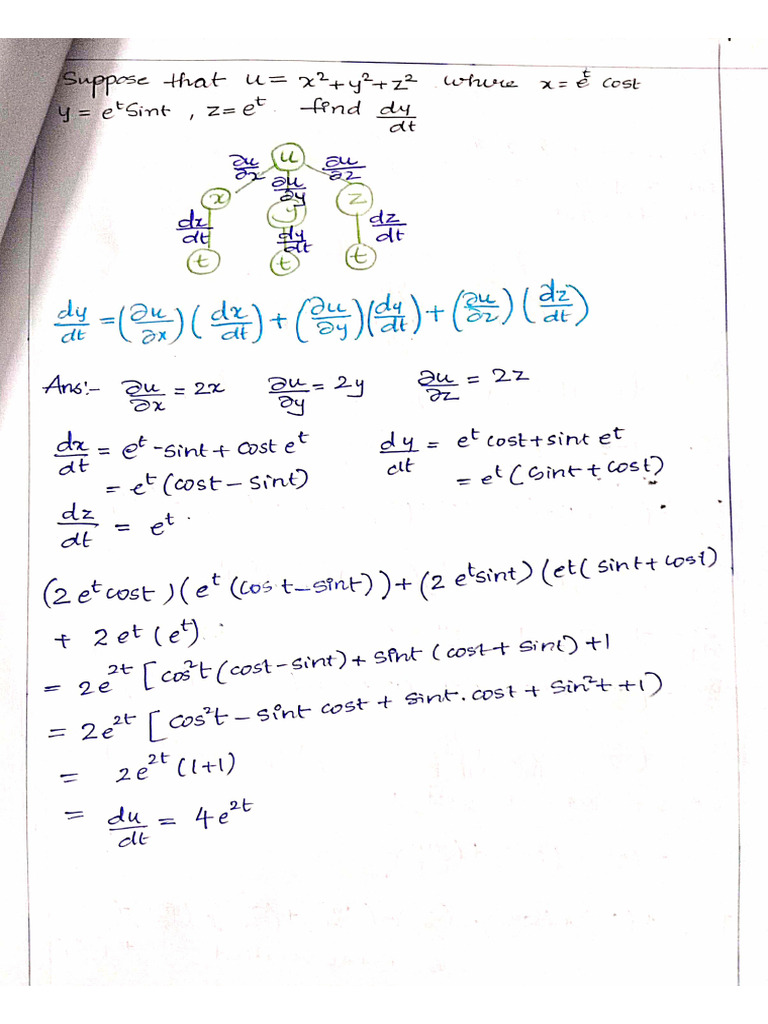 Suppose that u = x²+y²+z² where x = e^t cost
y = e^t Sint , z = e^t find dy/dt
u
∂u/∂x ∂u/∂y ∂u/∂z
x y z
dx/dt dy/dt dz/dt
t t t
dy/dt = (∂u/∂x) (dx/dt) + (∂u/∂y) (dy/dt) + (∂u/∂z) (dz/dt)
Ans:- ∂u/∂x = 2x ∂u/∂y = 2y ∂u/∂z = 2z
dx/dt = e^t -sint + cost e^t dy/dt = e^t cost + sint e^t
= e^t (cost - sint) = e^t (sint + cost)
dz/dt = e^t.
(2 e^t cost) (e^t (cos t - sint)) + (2 e^t sint) (et (sint + cost)
+ 2 et (e^t).
= 2e^2t [cos²t (cost - sint) + sint (cost + sint) + 1
= 2e^2t [cos²t - sint cost + sint.cost + sin²t + 1)
= 2e^2t (1+1)
= du/dt = 4e^2t